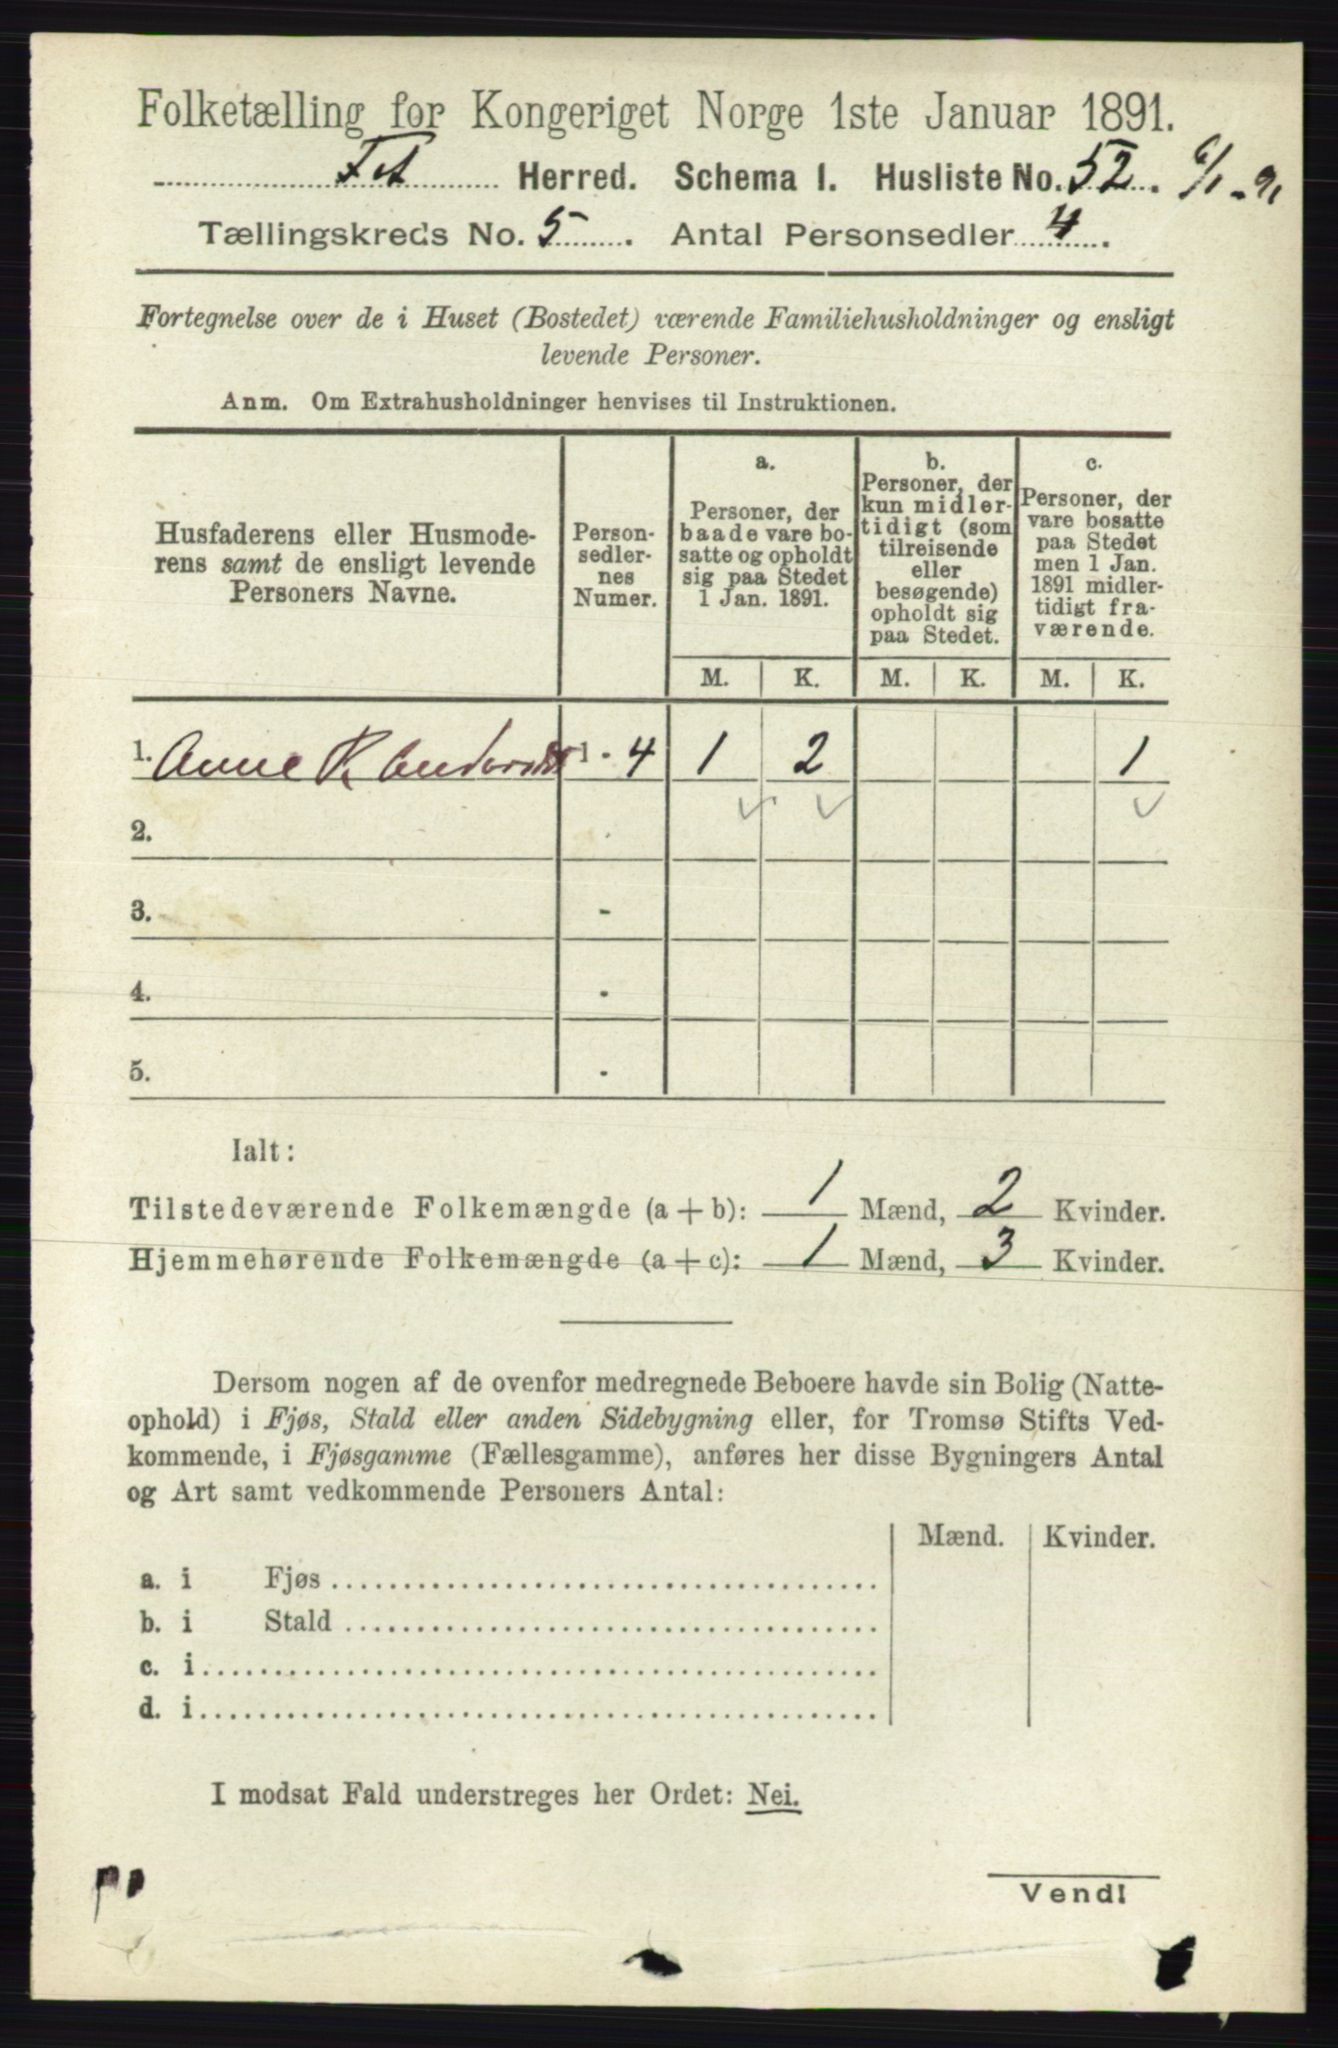 Folketælling for Kongeriget Norge 1ste Januar 1891.
Fet Herred. Schema I. Husliste No. 52. 6/1-91
Tællingskreds No. 5. Antal Personsedler 4.
Fortegnelse over de i Huset (Bostedet) værende Familiehusholdninger og ensligt
levende Personer.
Anm. Om Extrahusholdninger henvises til Instruktionen.
Husfaderens eller Husmode-
rens samt de ensligt levende
Personers Navne.
Person-
sedler-
nes
Numer.
a.
Personer, der
baade vare bo-
satte og opholdt
sig paa Stedet
1 Jan. 1891.
b.
Personer, der
kun midler-
tidigt (som
tilreisende
eller
besøgende)
opholdt sig
paa Stedet.
c.
Personer, der
vare bosatte
paa Stedet
men 1 Jan.
1891 midler-
tidigt fra-
værende.
M. K. M. K. M. K.
1. Anne K. 1 - 4 1 2 1
2.
3. -
4. -
5. -
Ialt:
Tilstedeværende Folkemængde (a + b): 1 Mænd, 2 Kvinder.
Hjemmehørende Folkemængde (a + c): 1 Mænd, 3 Kvinder.
Dersom nogen af de ovenfor medregnede Beboere havde sin Bolig (Natte-
ophold) i Fjøs, Stald eller anden Sidebygning eller, for Tromsø Stifts Ved-
kommende, i Fjøsgamme (Fællesgamme), anføres her disse Bygningers Antal
og Art samt vedkommende Personers Antal:
Mænd. Kvinder.
a. i Fjøs
b. i Stald
c. i
d. i
I modsat Fald understreges her Ordet: Nei.
Vend!